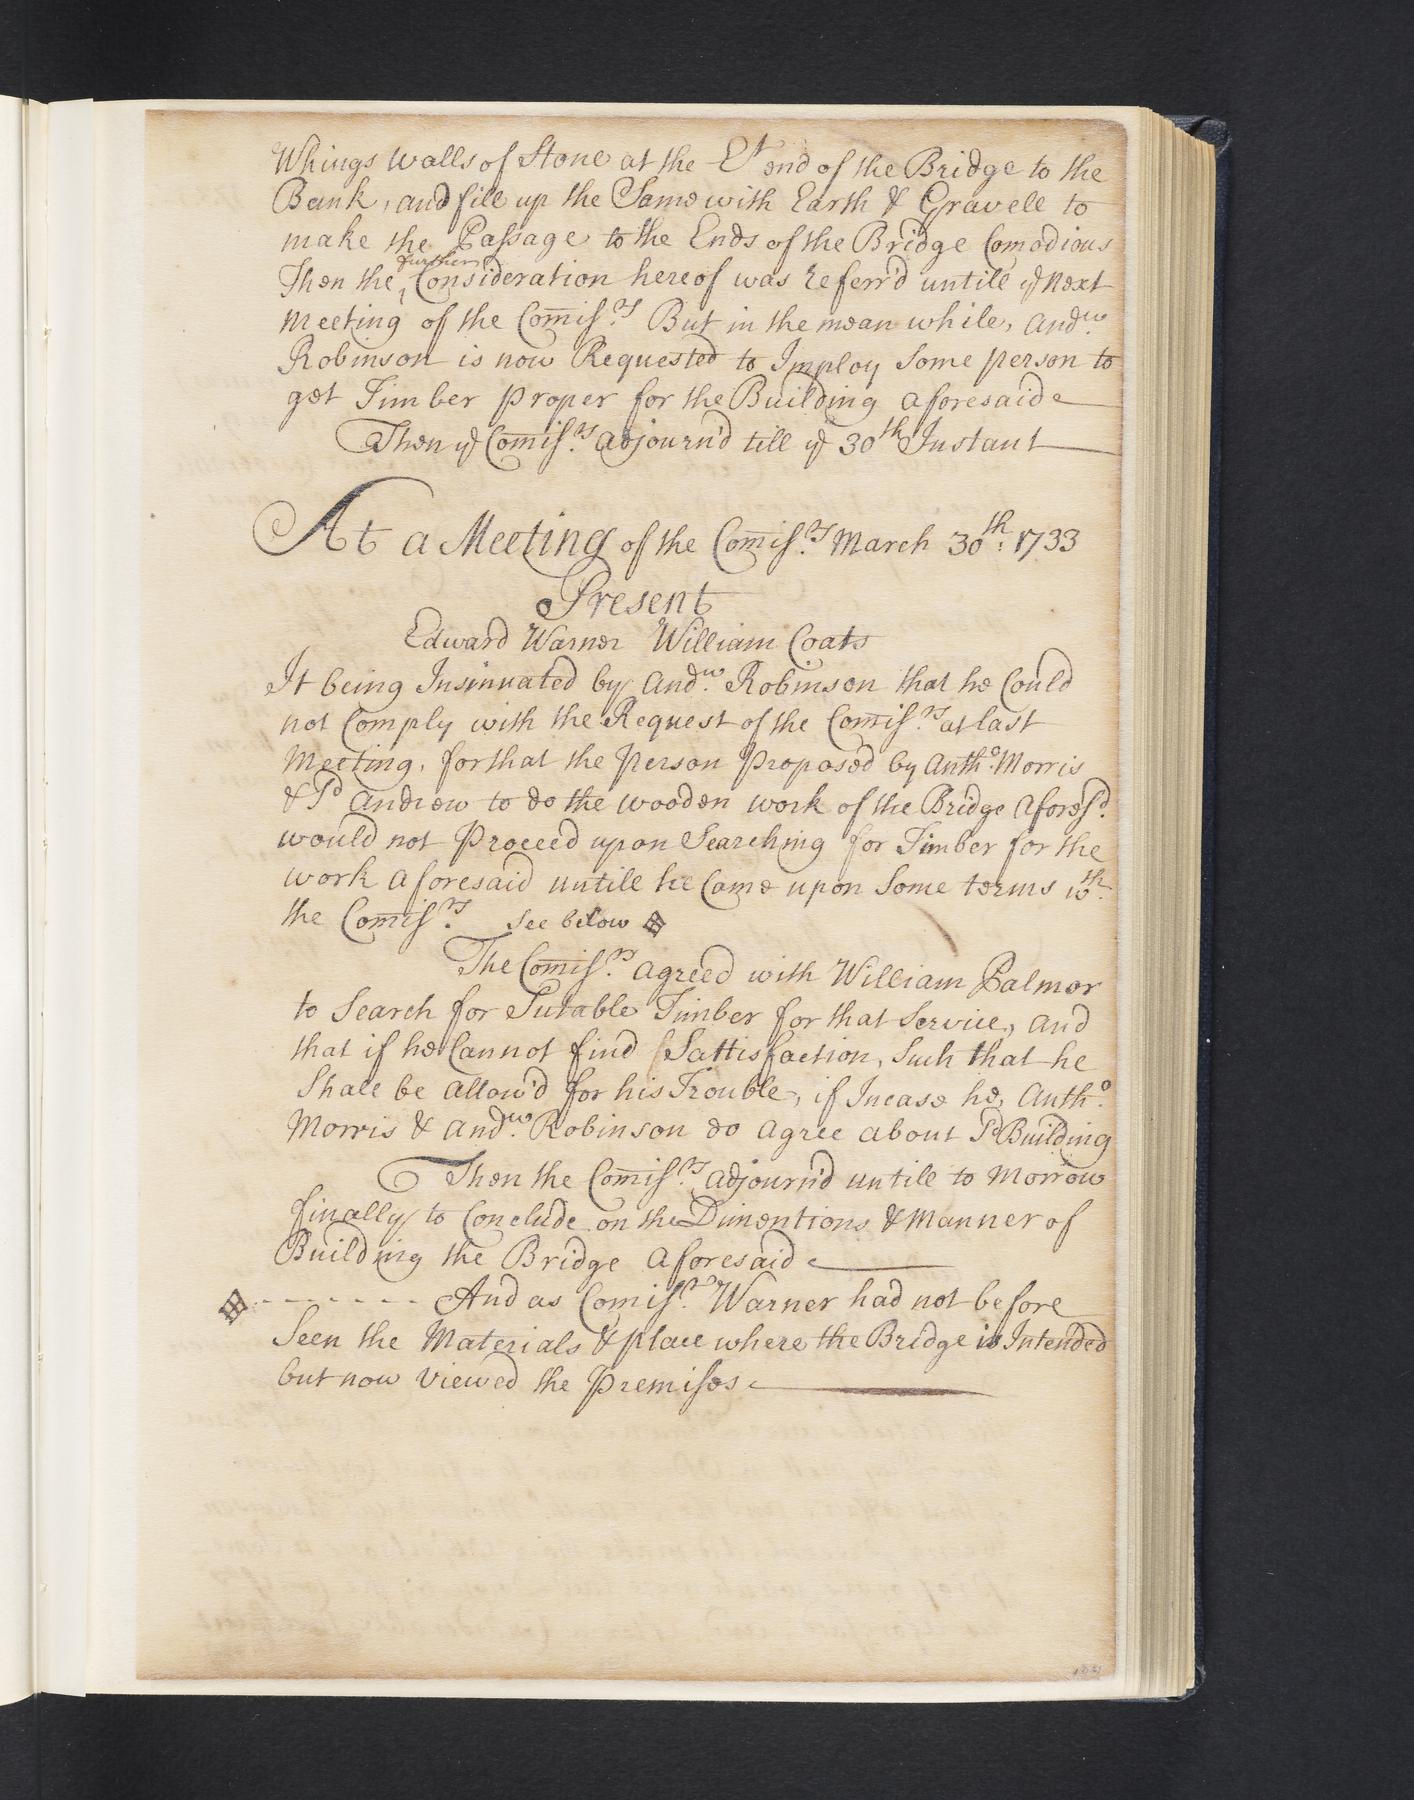 Whings walls of Stone at the Et end of the Bridge to the
Bank, and fill up the Same with Earth & Gravell to
make the Passage to the Ends of the Bridge Comodious
Then the further Consideration hereof was referr'd untill ye Next
Meeting of the Comiss.rs But in the mean while, Andw.
Robinson is now Requested to Imploy Some person to
get Timber proper for the Building aforesaid
Then ye Comiss.rs adjourn'd till ye 30th Instant
At a Meeting of the Comiss.rs March 30th: 1733
Present
Edward Warner William Coats
It being Insinuated by Andw. Robinson that he Could
not Comply with the Request of the Comiss.rs at last
Meeting, for that the person proposed by Antho. Morris
& Sd Andrew to do the wooden work of the Bridge aforesd.
would not Proceed upon Searching for Timber for the
work aforesaid untill he Came upon Some terms wth.
the Comiss.rs See below
The Comiss.rs agreed with William Palmer
to Search for Sutable Timber for that Service, and
that if he Cannot find Sattisfaction, Such that he
Shall be allow'd for his Trouble, if Incase he, Antho.
Morris & Andw. Robinson do agree about Sd Building
Then the Comiss.rs adjourn'd untill to Morrow
finally to Conclude on the Dimentions & Manner of
Building the Bridge aforesaid
And as Comiss.r Warner had not before
Seen the Materials & place where the Bridge is Intended
but now Viewed the Premises